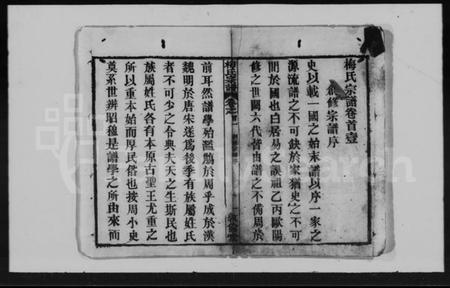 梅氏宗譜卷首壹
創修宗譜序
史以載一國之始末譜以序一家之
源流譜之不可缺於家猶史之不可
間於國也白居易之誤祖乙丙歐陽
修之世闕六代皆由譜之不備周於
前耳然譜學殆濫觴於周乎成於漢
魏明於唐宋遂爲後季有族屬姓氏
者不可少之令典夫天之生斯民也
族屬姓氏各有本原古聖王尤重之
所以重本始而厚民俗也按周小史
奠系世辨昭穆是譜學之所由來而
梅氏宗譜